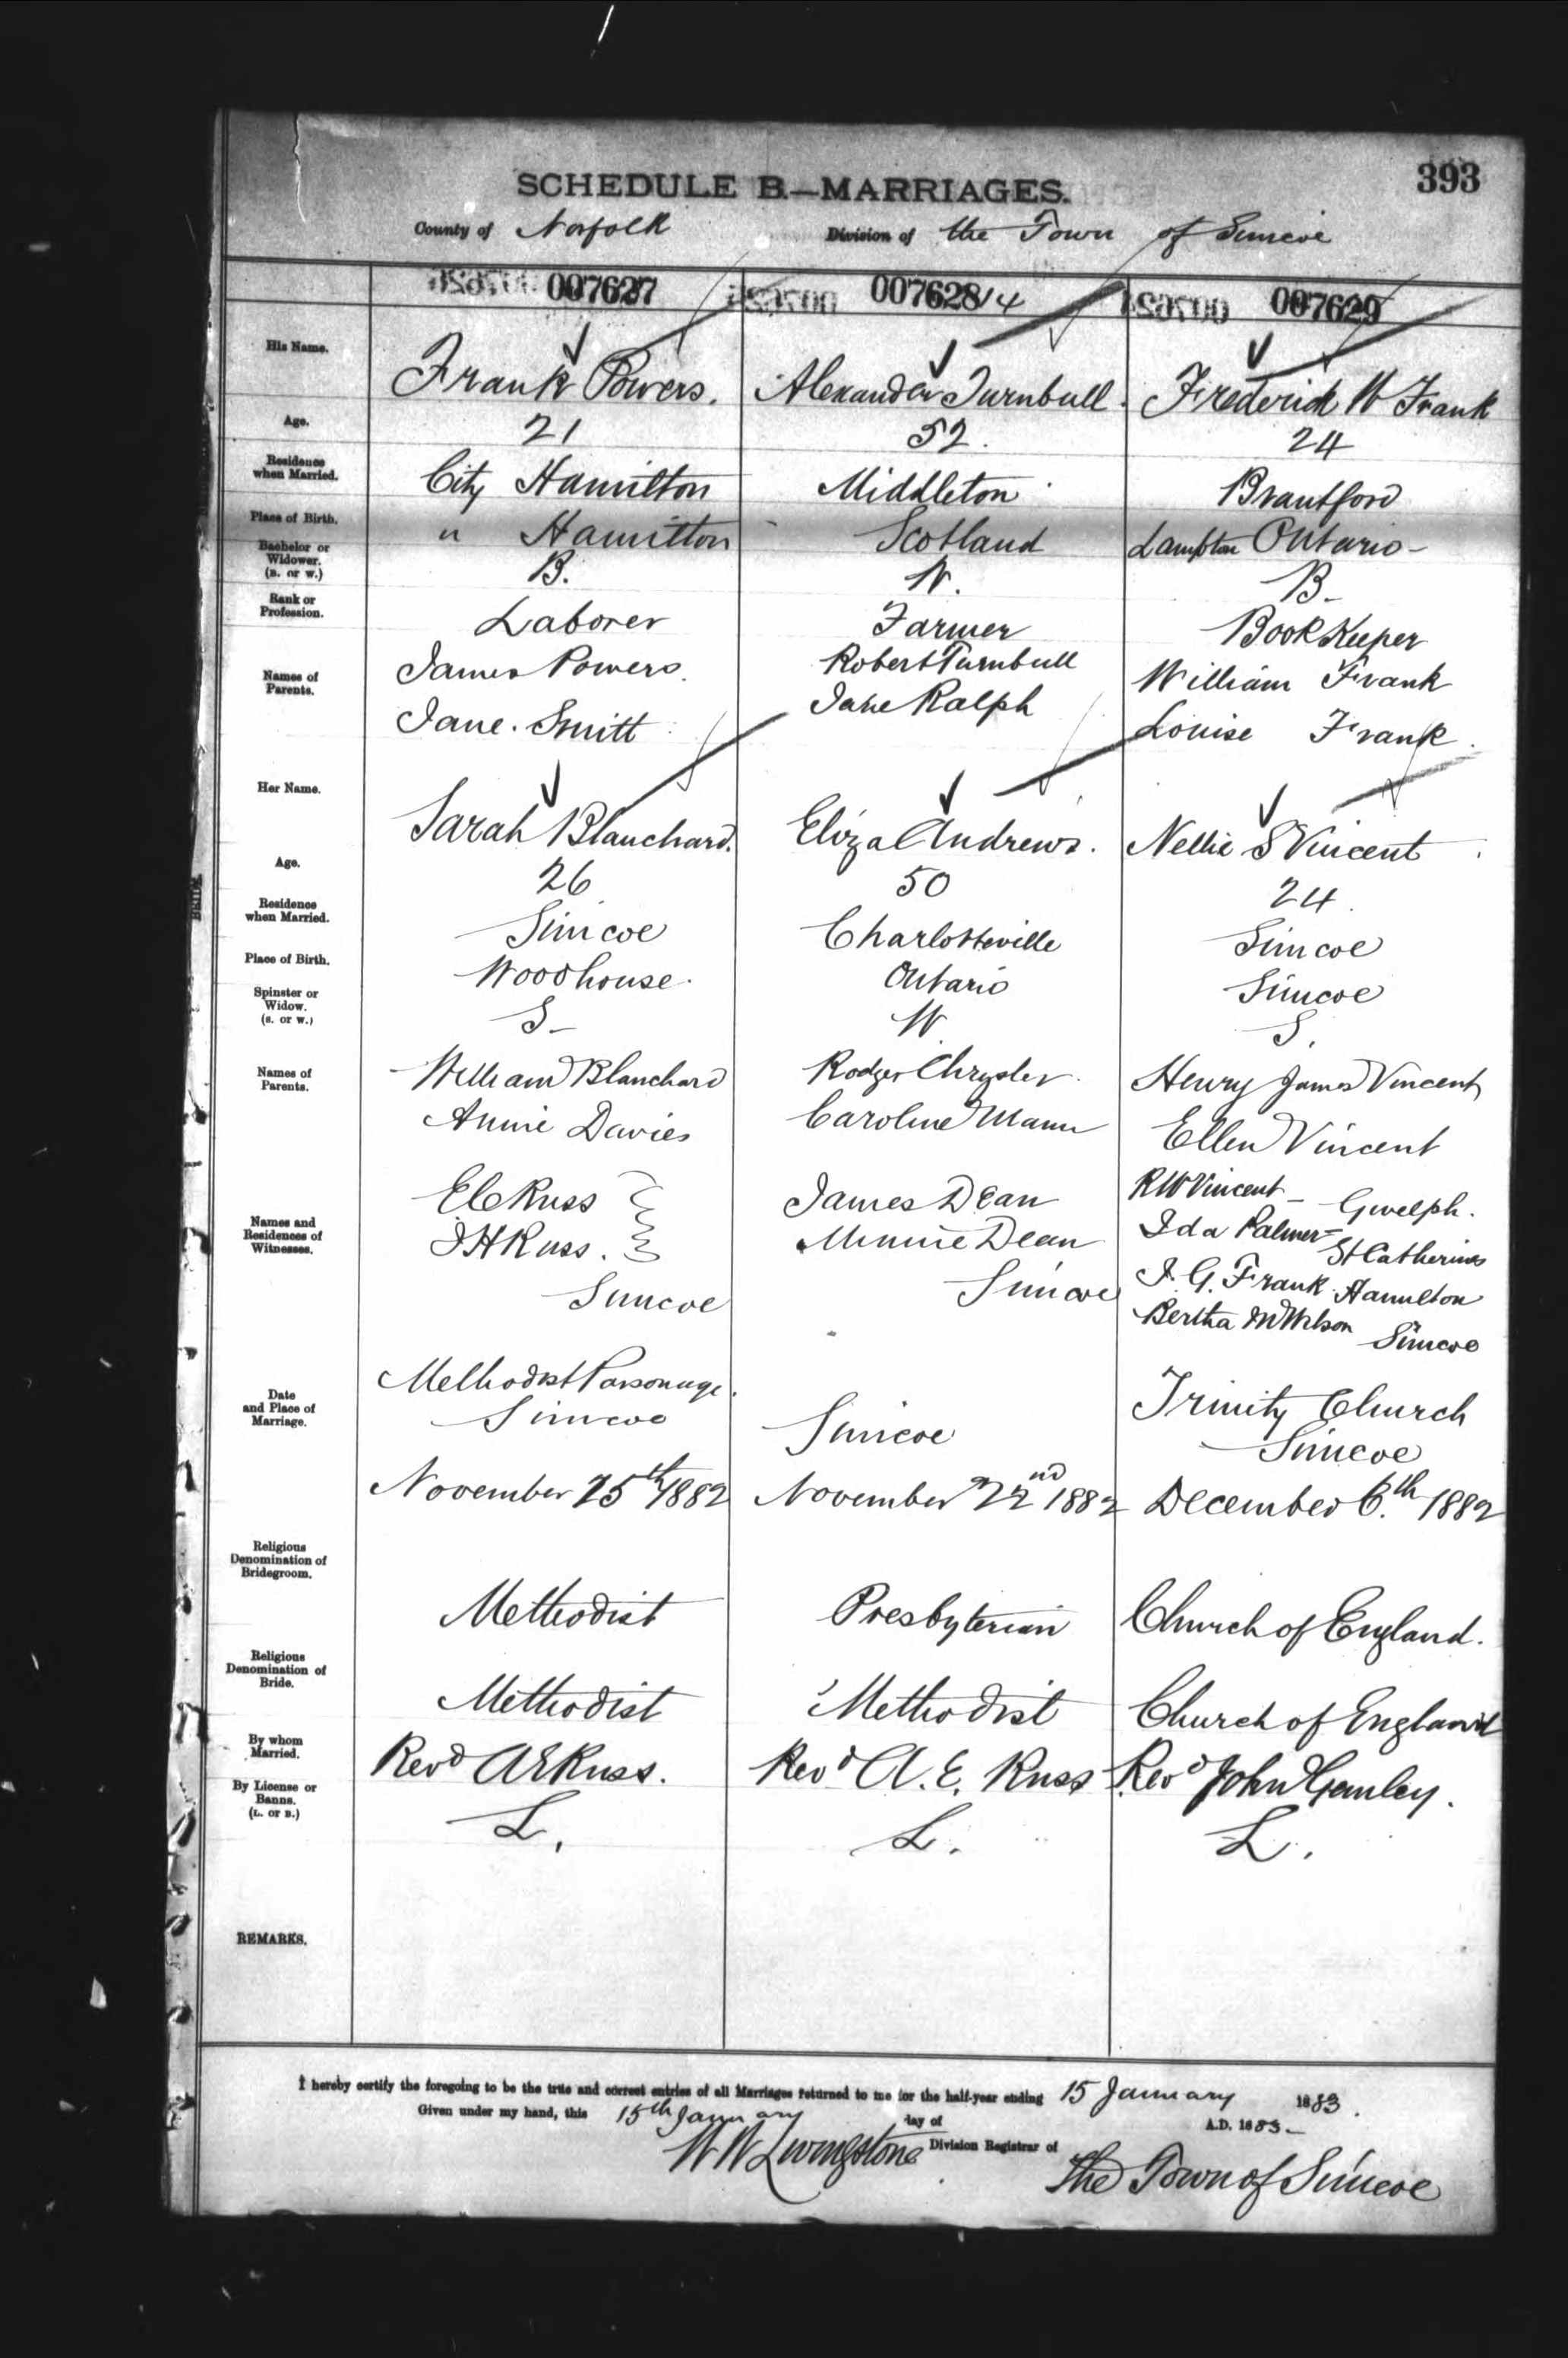 393
SCHEDULE B.—MARRIAGES.
County of Norfolk Division of the Town of Simcoe
007627 007628 14 007629
His Name. Frank Powers. Alexander Turnbull. Frederick W Frank
Age. 21 52. 24
Residence when Married. City Hamilton Middleton Brantford
Place of Birth. " Hamilton Scotland Lampton Ontario
Bachelor or Widower. (B. or W.) B. W. B
Rank or Profession. Laborer Farmer Book Keeper
Names of Parents. James Powers. Robert Turnbull William Frank
Jane. Smitt Jane Ralph Louise Frank
Her Name. Sarah Blanchard. Eliza Andrews. Nellie S Vincent
Age. 26 50 24
Residence when Married. Simcoe Charlotteville Simcoe
Place of Birth. Woodhouse. Ontario Simcoe
Spinster or Widow. (S. or W.) S W S.
Names of Parents. William Blanchard Rodger Chrysler Henry James Vincent
Annie Davies Caroline Mann Ellen Vincent
Names and Residences of Witnesses. Russ James Dean R W Vincent Guelph.
Russ. Minnie Dean Ida Palmer St Catherines
Simcoe Simcoe J. G. Frank Hamilton
Bertha M Wilson Simcoe
Date and Place of Marriage. Methodist Parsonage. Trinity Church
Simcoe Simcoe Simcoe
November 25th 1882 November 22nd 1882 December 6.th 1882
Religious Denomination of Bridegroom. Methodist Presbyterian Church of England.
Religious Denomination of Bride. Methodist Methodist Church of England
By whom Married. Revd A E Russ. Revd A. E. Russ Revd John Gemley.
By License or Banns. (L. or B.) L. L. L.
REMARKS.
I hereby certify the foregoing to be the true and correct entries of all Marriages returned to me for the half-year ending 15 January 1883.
Given under my hand, this 15th January day of A.D. 1883
W W Livingstone Division Registrar of The Town of Simcoe